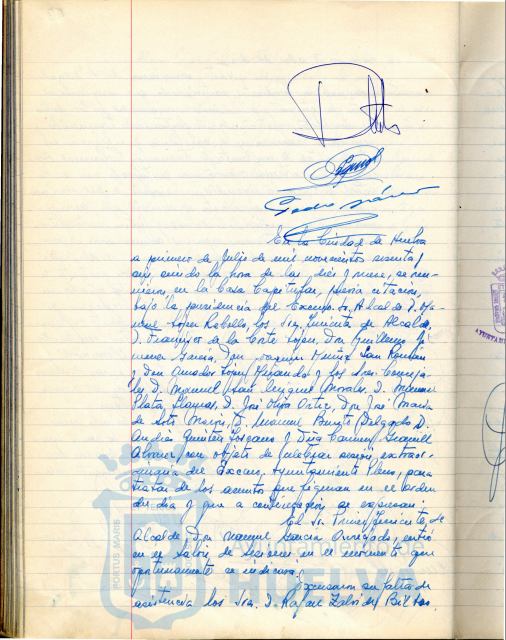 Pedro
En la Ciudad de Huelva
a primero de Julio de mil novecientos sesenta y
siendo la hora de las diez y nueve, se reu-
nieron en la Casa Capitular, previa citación,
bajo la presidencia del Excmo. Sr. Alcalde D. Ma-
nuel López Rebollo, los Sres. Tenientes de Alcalde,
D. Francisco de la Corte López, Don Guillermo Ji-
menez García, Don Joaquin Muñiz San Román
y Don Amador López Miranda y los Sres. Conceja-
les D. Manuel Morales, D. Manuel
Plata Llamas, D. José Oliva Ortiz, Don José María
de Soto D. Manuel Benito Delgado, D.
Andrés Quintero y Dña Carmen
Alvarez, con objeto de celebrar sesión extraor-
dinaria del Excmo. Ayuntamiento Pleno, para
tratar de los asuntos que figuran en el orden
del dia y que a continuación se expresan.
El Sr. Primer Teniente de
Alcalde, Don Manuel García entró
en el Salón de Sesiones en el momento que
oportunamente se indicará.
Excusaron su falta de
asistencia los Sres. D. Rafael
PORTUS MARIS
HUELVA